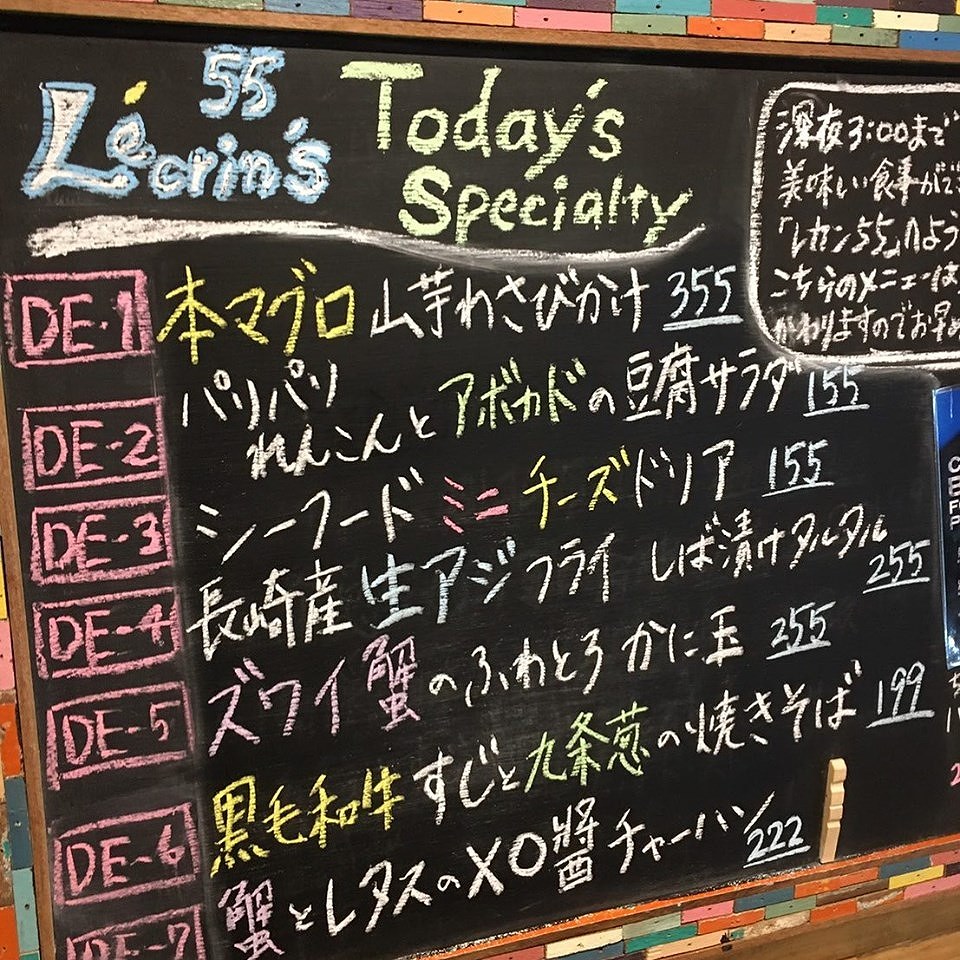 55
Lécrin's
Today's
Specialty
深夜3:00まで
美味しい食事がで
「レカン55」へよう
こちらのメニューは
かわりますのでお早め
DE-1 本マグロ 山芋わさびかけ 355
DE-2 パリパリ
れんこんとアボカドの豆腐サラダ 155
DE-3 シーフードミニチーズドリア 155
DE-4 長崎産生アジフライ しば漬けタルタル 255
DE-5 ズワイ蟹のふわとろかに玉 255
DE-6 黒毛和牛すじと九条葱の焼きそば 199
DE-7 蟹とレタスのXO醤チャーハン 222